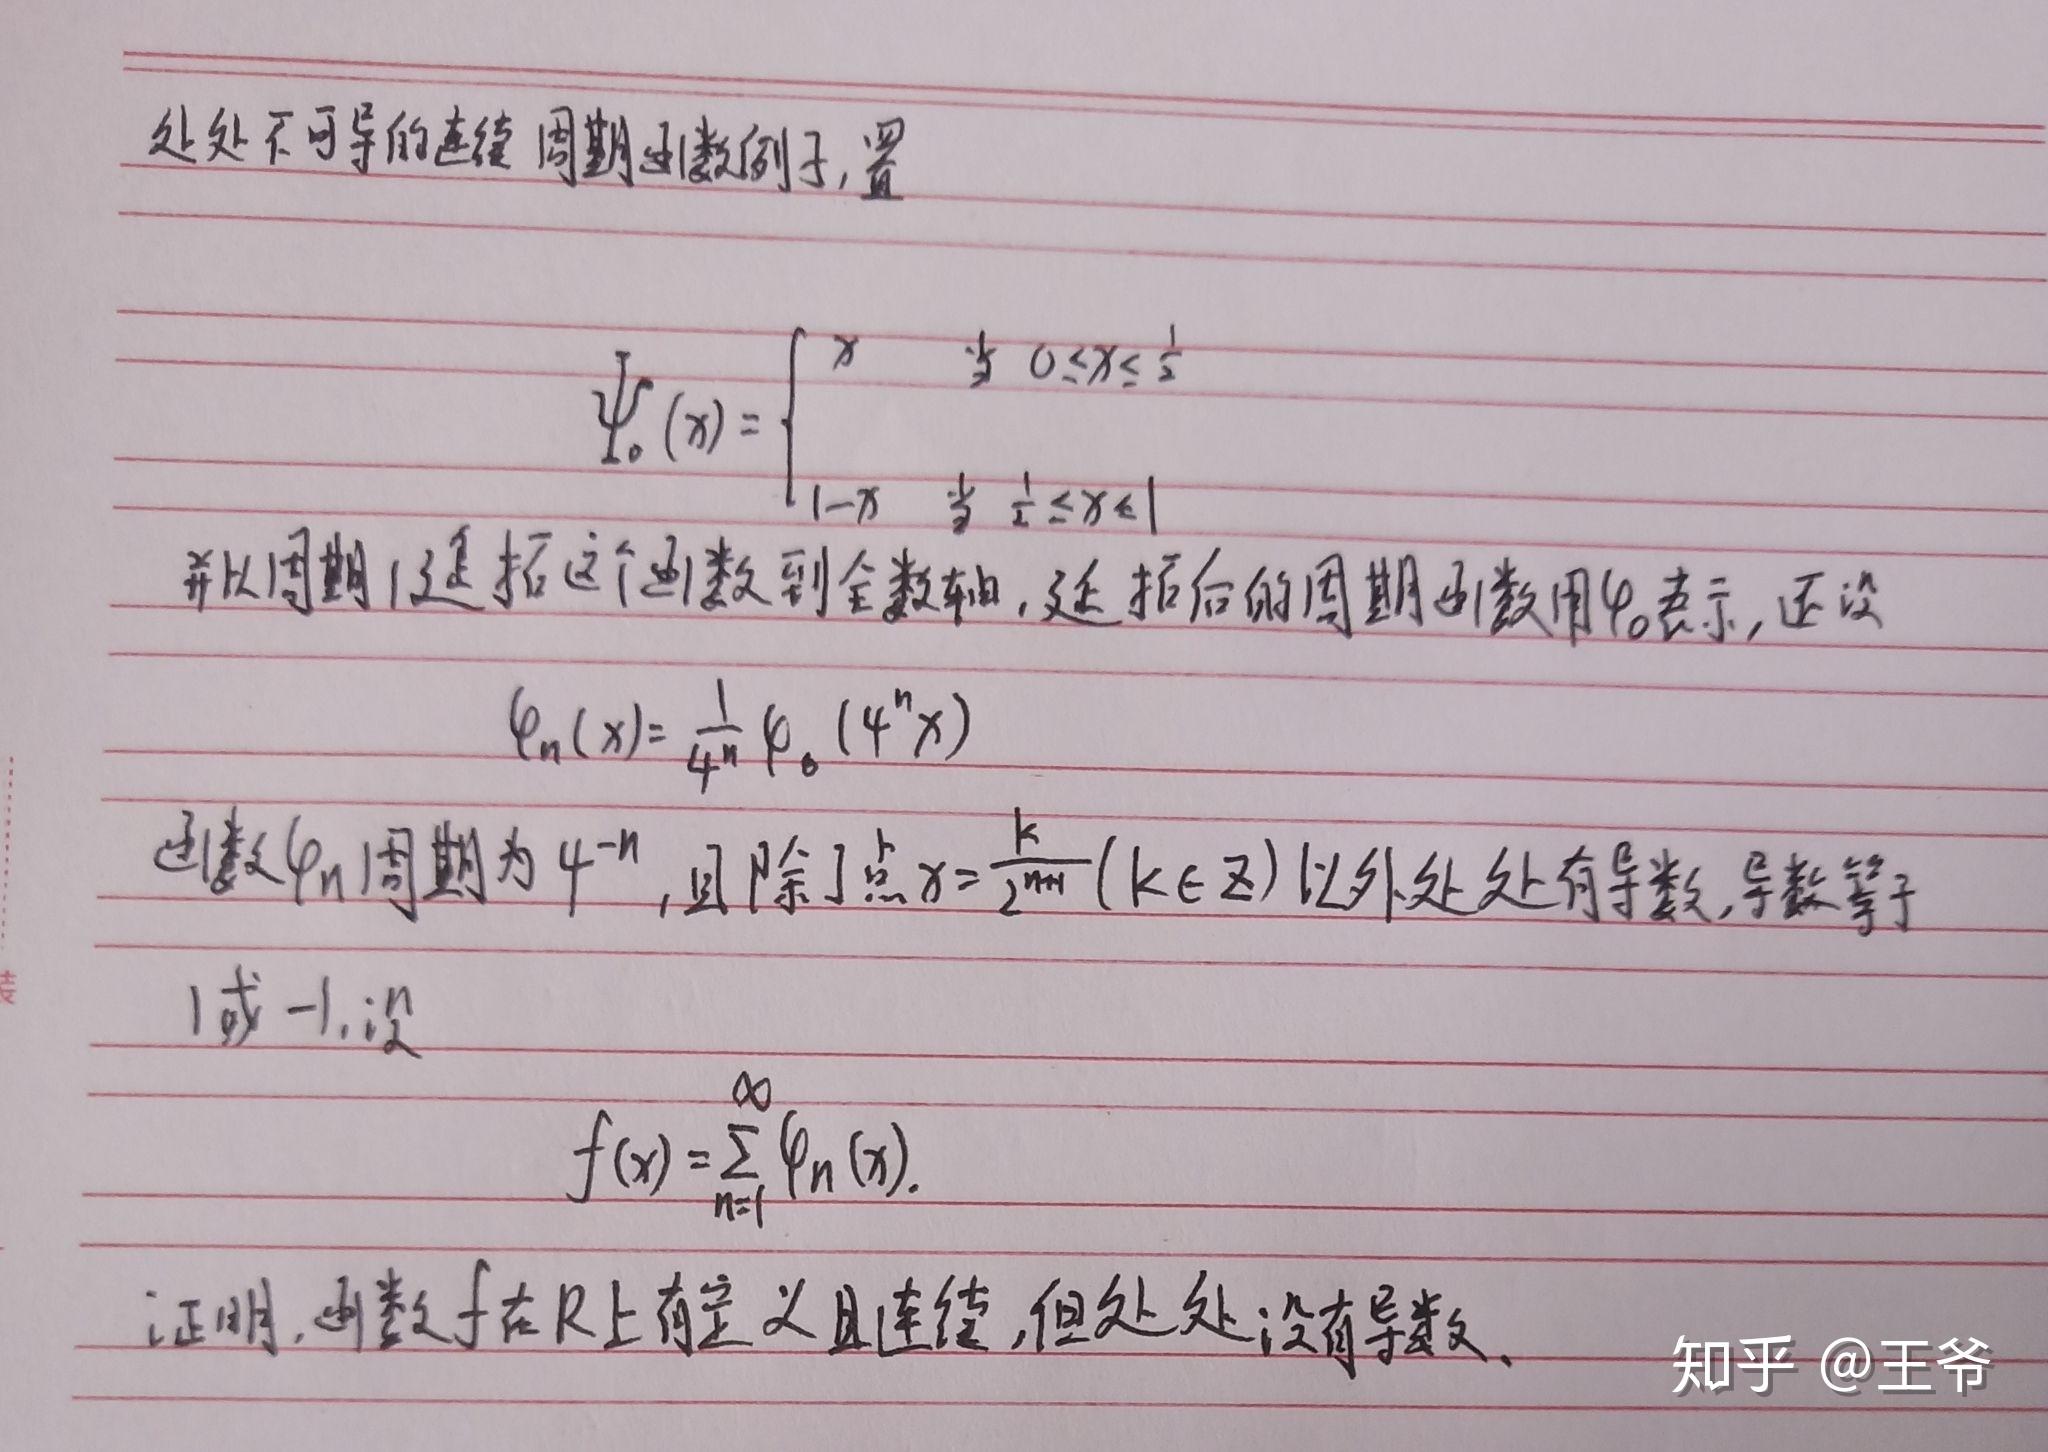 处处不可导的连续周期函数例子,置
Ψ₀(x)= { x 当 0≤x≤1/2
1-x 当 1/2≤x≤1
并以周期1延拓这个函数到全数轴,延拓后的周期函数用φ₀表示,还设
φₙ(x)= 1/4ⁿ φ₀(4ⁿx)
函数φₙ周期为4⁻ⁿ,且除了点x= k/2ⁿ⁺¹ (k∈Z)以外处处有导数,导数等于
1或-1.设
f(x)= ∑_{n=1}^{∞} φₙ(x).
证明,函数f在R上有定义且连续,但处处没有导数.
知乎 @王爷
装